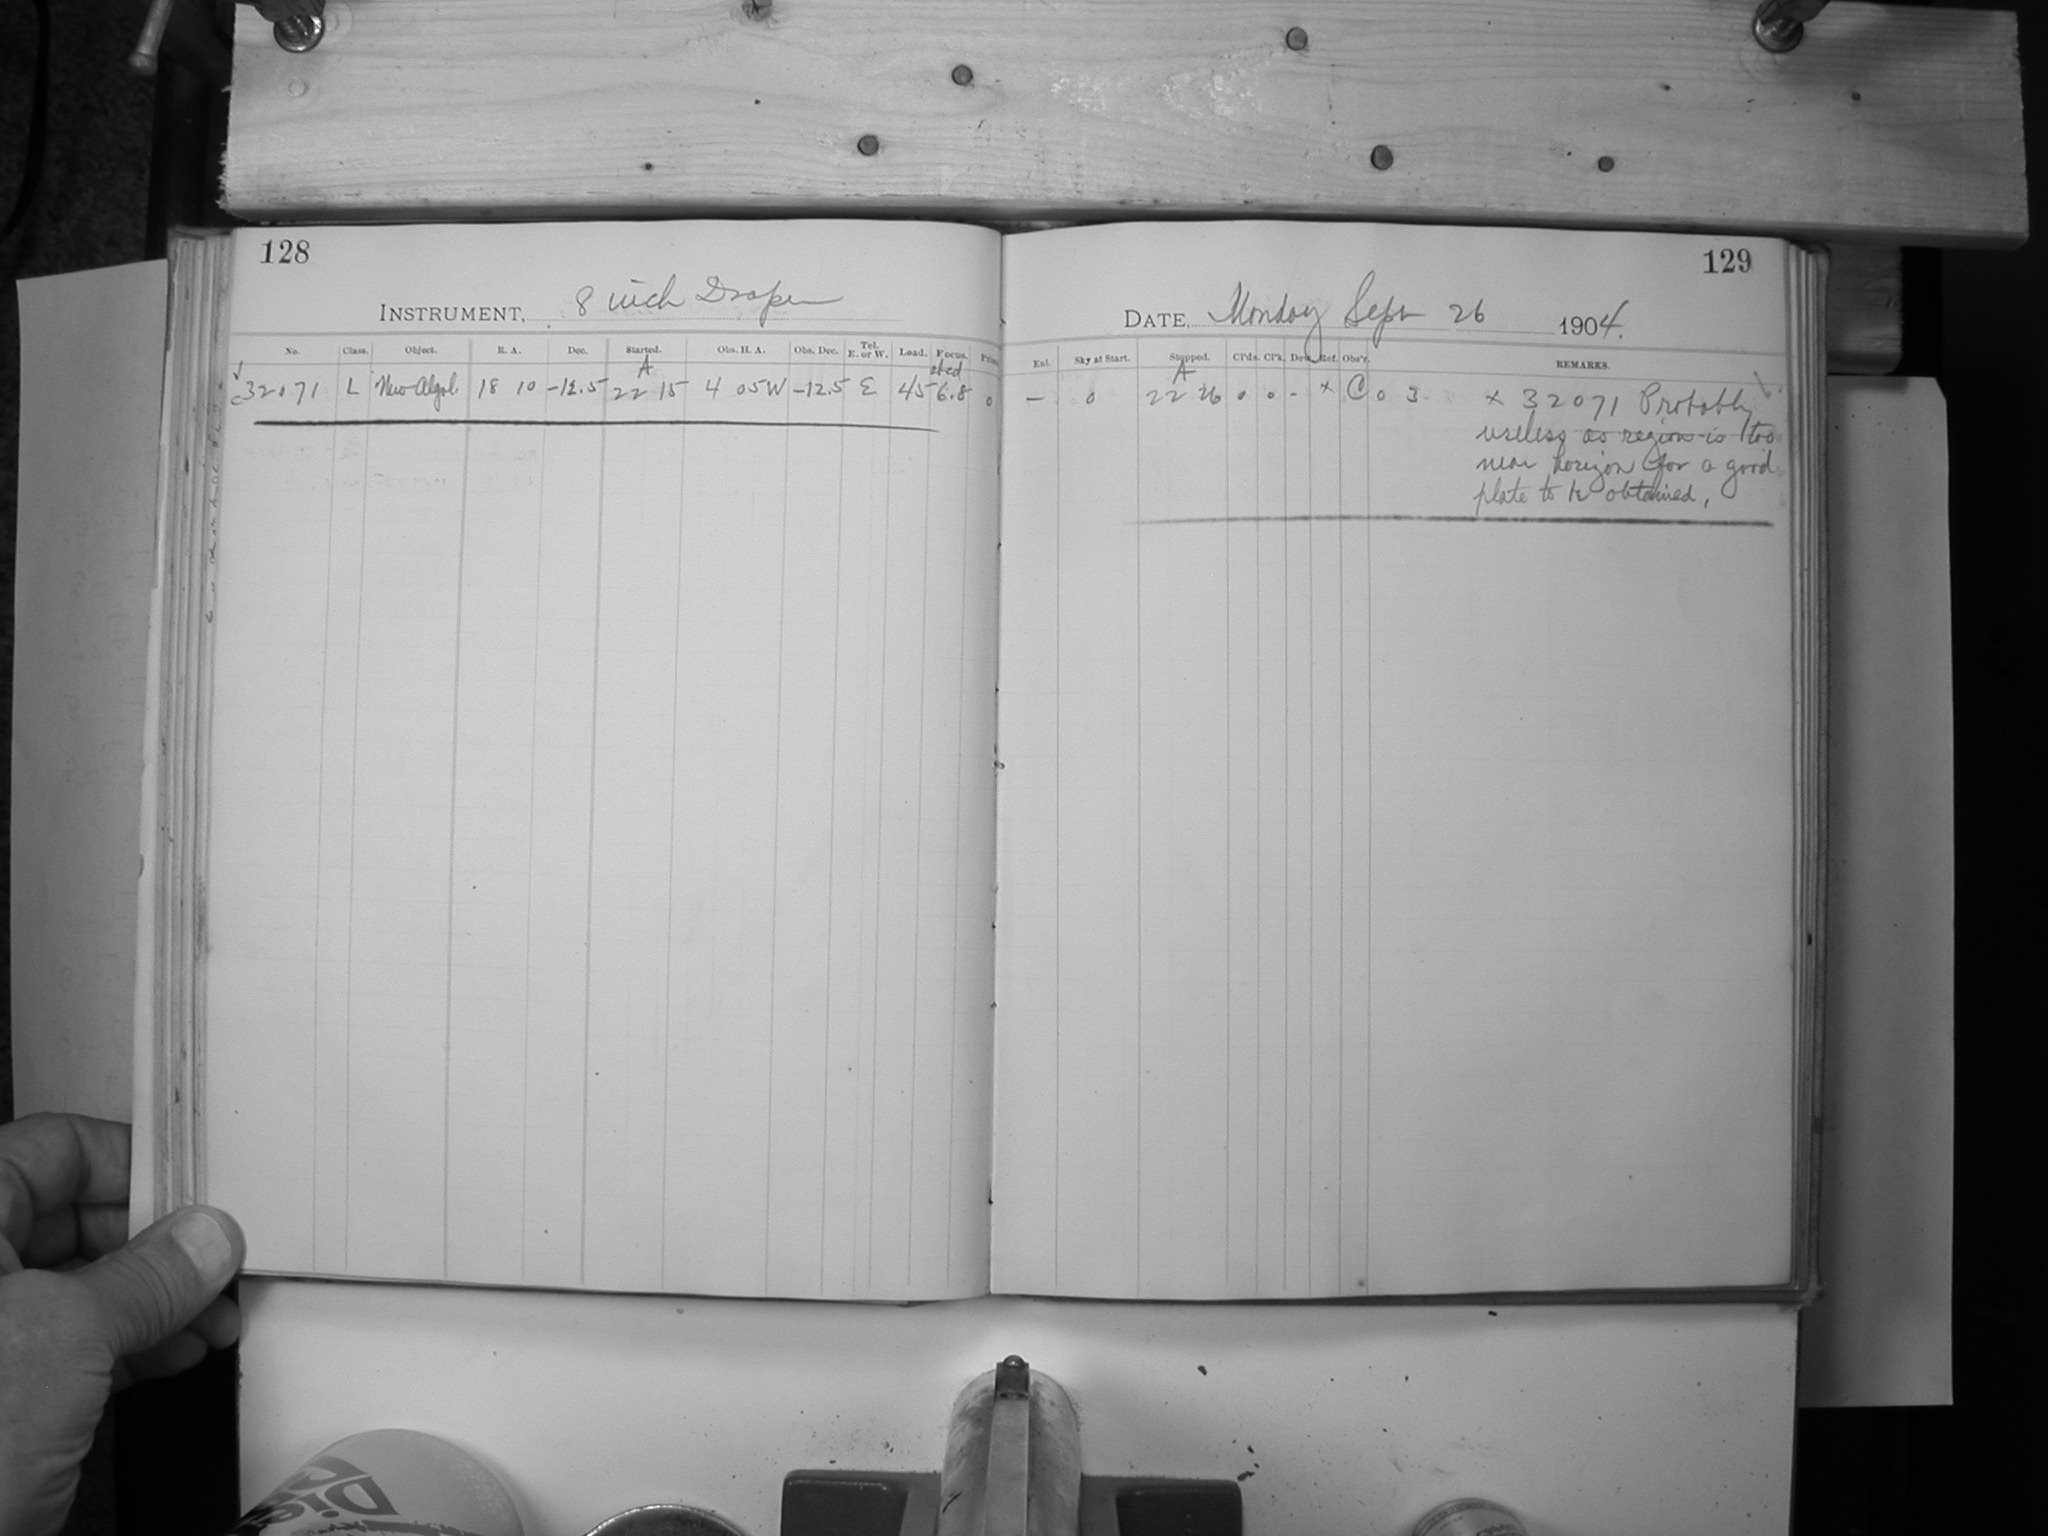 128
INSTRUMENT, 8 inch Draper
No. Class. Object. R. A. Dec. Started. Obs. H. A. Obs. Dec. Tel. E. or W. Load. Focus.
A
c32071 L New Algol 18 10 -12.5 22 15 4 05W -12.5 E 45 6.8 0
129
DATE, Monday Sept 26 1904.
Ent. Sky at Start. Stopped. Cl'ds. Cl'k. Dew. Ref. Obs'r. REMARKS.
A
– 0 22 26 0 0 - x C 0 3 x 32071 Probably
useless as region is too
near horizon for a good
plate to be obtained,
Die